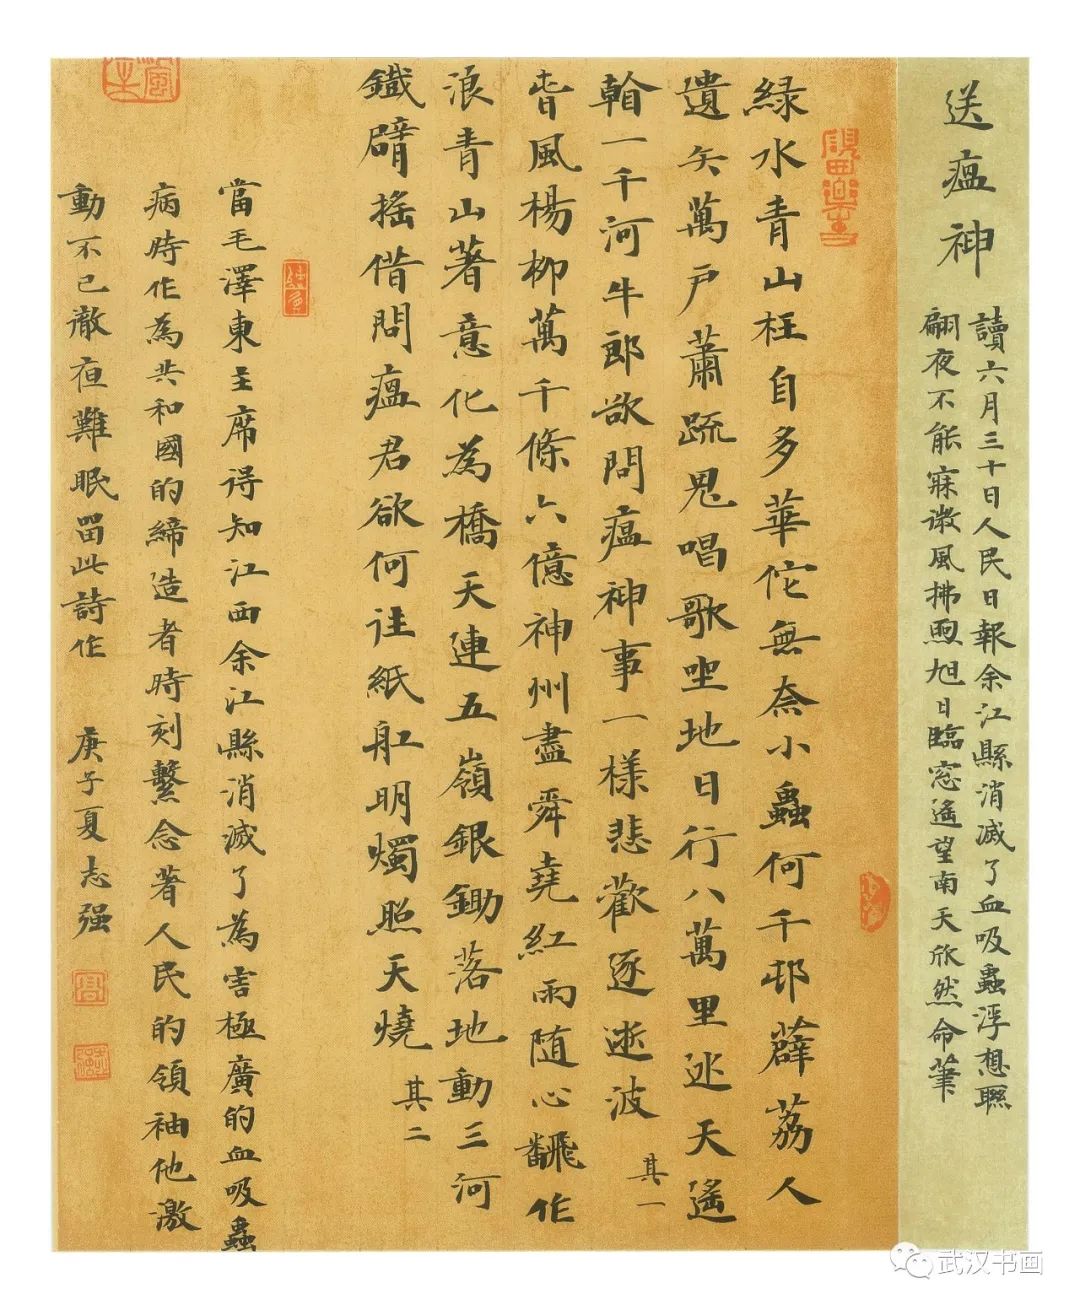 送瘟神
讀六月三十日人民日報余江縣消滅了血吸蟲浮想聯
翩夜不能寐微風拂煦旭日臨窓遙望南天欣然命筆
緑水青山枉自多華佗無奈小蟲何千邨薜荔人
遺矢萬戶蕭疏鬼唱歌坐地日行八萬里巡天遙
看一千河牛郎欲問瘟神事一樣悲歡逐逝波 其一
春風楊柳萬千條六億神州盡舜堯紅雨随心飜作
浪青山著意化為橋天連五嶺銀鋤落地動三河
鐵臂搖借問瘟君欲何往紙船明燭照天燒 其二
當毛澤東主席得知江西余江縣消滅了為害極廣的血吸蟲
病時作為共和國的締造者時刻繫念著人民的領袖他激
動不已徹夜難眠留此詩作 庚子夏志强
高
武汉书画